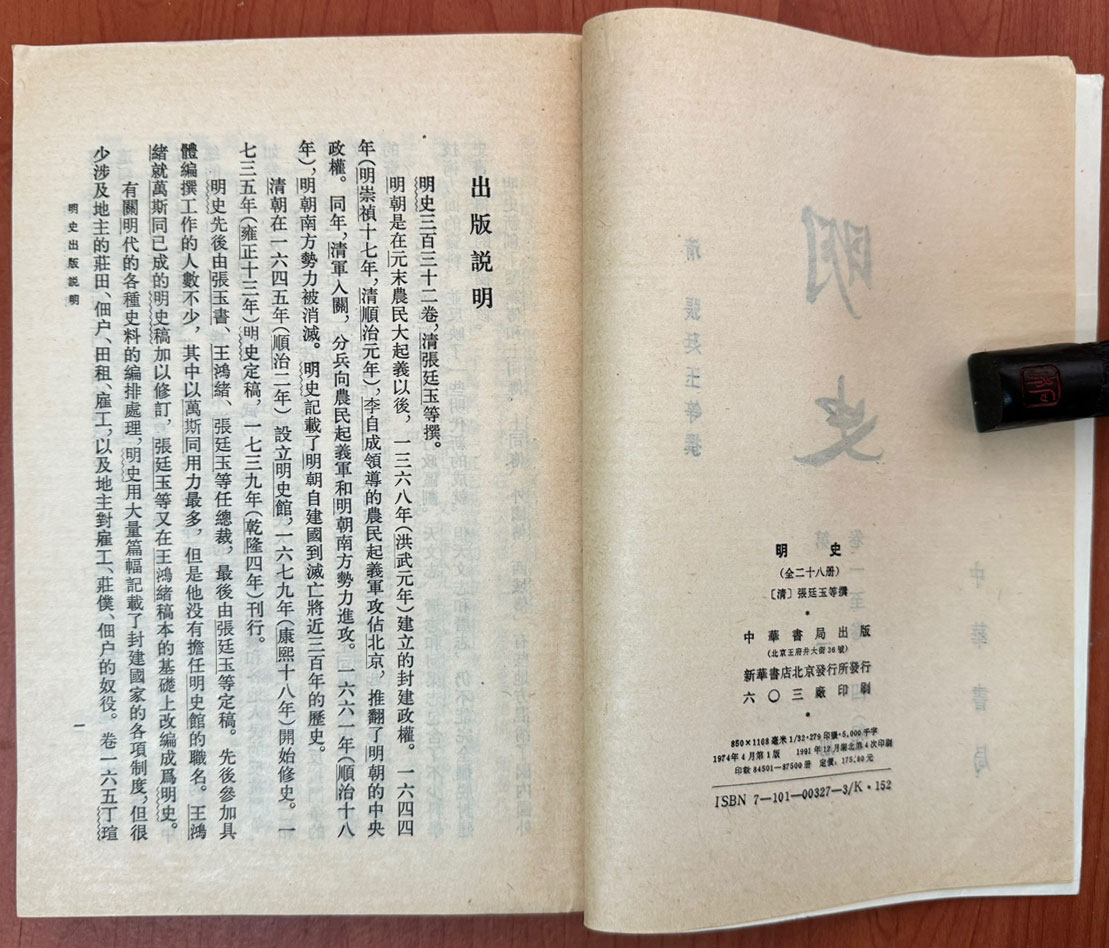 明史
(全二十八册)
〔清〕張廷玉等撰
中華書局出版
(北京王府井大街36號)
新華書店北京發行所發行
六〇三廠印刷
850×1168毫米1/32·279印張·5,000千字
1974年4月第1版 1991年12月湖北第4次印刷
印數84501—87500册 定價:175.80元
ISBN 7—101—00327—3/K·152
出版説明
明史三百三十二卷,清張廷玉等撰。
明朝是在元末農民大起義以後,一三六八年(洪武元年)建立的封建政權。一六四四
年(明崇禎十七年,清順治元年),李自成領導的農民起義軍攻佔北京,推翻了明朝的中央
政權。同年,清軍入關,分兵向農民起義軍和明朝南方勢力進攻。一六六一年(順治十八
年),明朝南方勢力被消滅。明史記載了明朝自建國到滅亡將近三百年的歷史。
清朝在一六四五年(順治二年)設立明史館,一六七九年(康熙十八年)開始修史。一
七三五年(雍正十三年)明史定稿,一七三九年(乾隆四年)刊行。
明史先後由張玉書、王鴻緒、張廷玉等任總裁,最後由張廷玉等定稿。先後參加具
體編撰工作的人數不少,其中以萬斯同用力最多,但是他没有擔任明史館的職名。王鴻
緒就萬斯同已成的明史稿加以修訂,張廷玉等又在王鴻緒稿本的基礎上改編成爲明史。
有關明代的各種史料的編排處理,明史用大量篇幅記載了封建國家的各項制度,但很
少涉及地主的莊田、佃户、田租、雇工,以及地主對雇工、莊僕、佃户的奴役。卷一六五丁瑄
明史出版説明
一